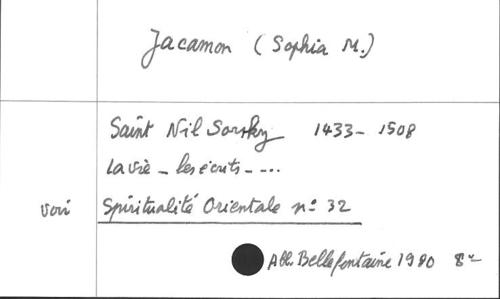 Jacamon (Sophia M.)
Saint Nil Sorsky 1433-1508
La vie - les écrits - ...
voir Spiritualité Orientale n° 32
Abb. Bellefontaine 1980 8°